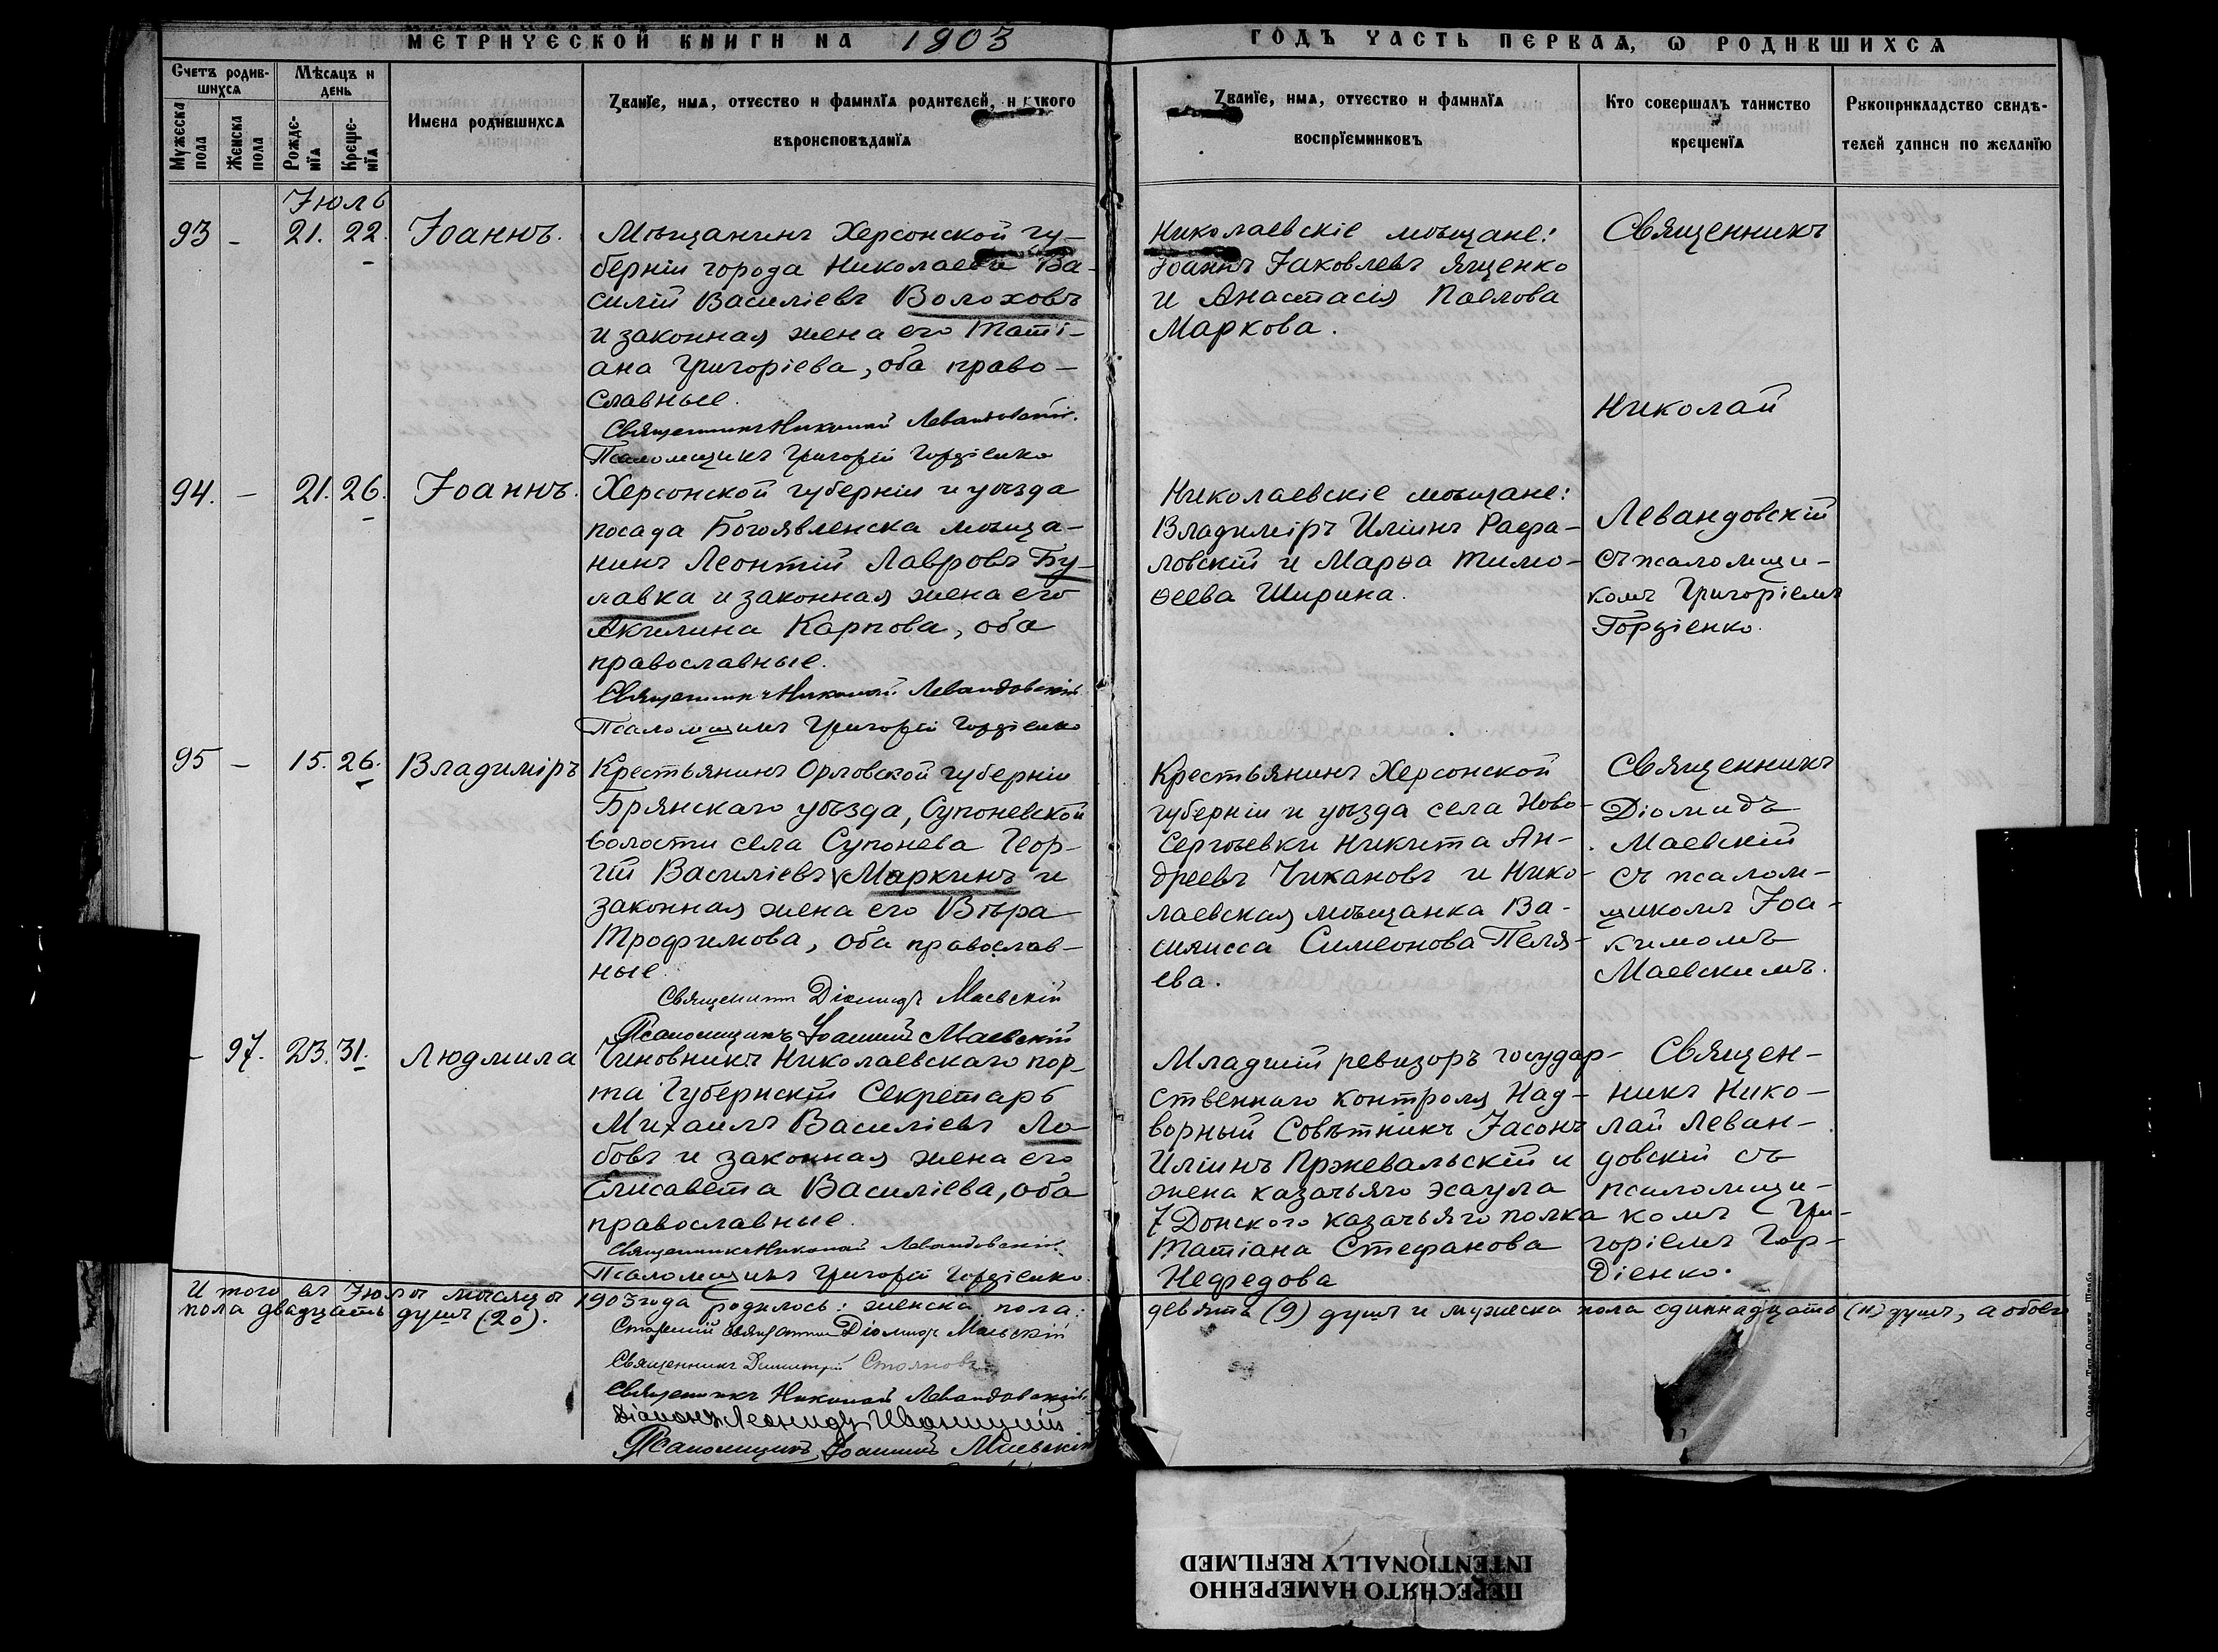 МЕТРИЧЕСКОЙ КНИГИ НА 1903
ГОДЪ ЧАСТЬ ПЕРВАЯ, Ѡ РОДИВШИХСЯ
Счетъ родив-
шихся
Мужеска
пола
Женска
пола
Мѣсяцъ и
день
Рожде-
нїя
Креще-
нїя
Имена родившихся
Званїе, имя, отчество и фамилїя родителей, и какого
вѣроисповѣданїя
Званїе, имя, отчество и фамилїя
воспрїемниковъ
Кто совершалъ таинство
крещенїя
Рукоприкладство свидѣ-
телей записи по желанїю
Іюль
93 - 21. 22. Іоаннъ.
Мѣщанинъ Херсонской гу-
берніи города Николаева Ва-
силій Василіевъ Волоховъ
и законная жена его Таті-
ана Григоріева, оба право-
славные.
Священникъ Николай Левандовскій.
Псаломщикъ Григорій Гордіенко
Николаевскіе мѣщане:
Іоаннъ Іаковлевъ Ященко
и Анастасія Павлова
Маркова.
Священникъ
Николай
Левандовскій
съ псаломщи-
комъ Григоріемъ
Гордіенко.
94. - 21. 26. Іоаннъ.
Херсонской губерніи и уѣзда
посада Богоявленска мѣща-
нинъ Леонтій Лавровъ Бу-
лавка и законная жена его
Акилина Карпова, оба
православные.
Священникъ Николай Левандовскій
Псаломщикъ Григорій Гордіенко
Николаевскіе мѣщане:
Владиміръ Иліинъ Рафа-
ловскій и Марѳа Тимо-
ѳеева Ширина.
95 - 15. 26. Владиміръ
Крестьянинъ Орловской губерніи
Брянскаго уѣзда, Супоневской
волости села Супонева Геор-
гій Василіевъ Маркинъ и
законная жена его Вѣра
Трофимова, оба православ-
ные.
Священникъ Діомидъ Маевскій
Псаломщикъ Іоакимъ Маевскій
Крестьянинъ Херсонской
губерніи и уѣзда села Ново-
Сергѣевки Никита Ан-
дреевъ Чикановъ и Нико-
лаевская мѣщанка Ва-
силисса Симеонова Пеля-
ева.
Священникъ
Діомидъ
Маевскій
съ псалом-
щикомъ Іоа-
кимомъ
Маевскимъ.
- 97. 23. 31. Людмила
Чиновникъ Николаевскаго пор-
та Губернскій Секретарь
Михаилъ Василіевъ Ло-
бовъ и законная жена его
Елисавета Василіева, оба
православные.
Священникъ Николай Левандовскій.
Псаломщикъ Григорій Гордіенко.
Младшій ревизоръ государ-
ственнаго контроля Над-
ворный Совѣтникъ Іасонъ
Иліинъ Пржевальскій и
жена казачьяго эсаула
7 Донского казачьяго полка
Татіана Стефанова
Нефредова
Священ-
никъ Нико-
лай Леван-
довскій съ
псаломщи-
комъ Гри-
горіемъ Гор-
діенко.
Итого въ Іюлѣ мѣсяцѣ 1903 года родилось: женска пола: девять (9) душъ и мужеска пола одиннадцать (11) душъ, а обоего
пола двадцать душъ (20).
Старшій священникъ Діомидъ Маевскій
Священникъ Димитрій Стояновъ
Священникъ Николай Левандовскій
Діаконъ Леонидъ
Псаломщикъ Іоакимъ Маевскій
ПЕРЕСНЯТО НАМЕРЕННО
INTENTIONALLY REFILMED